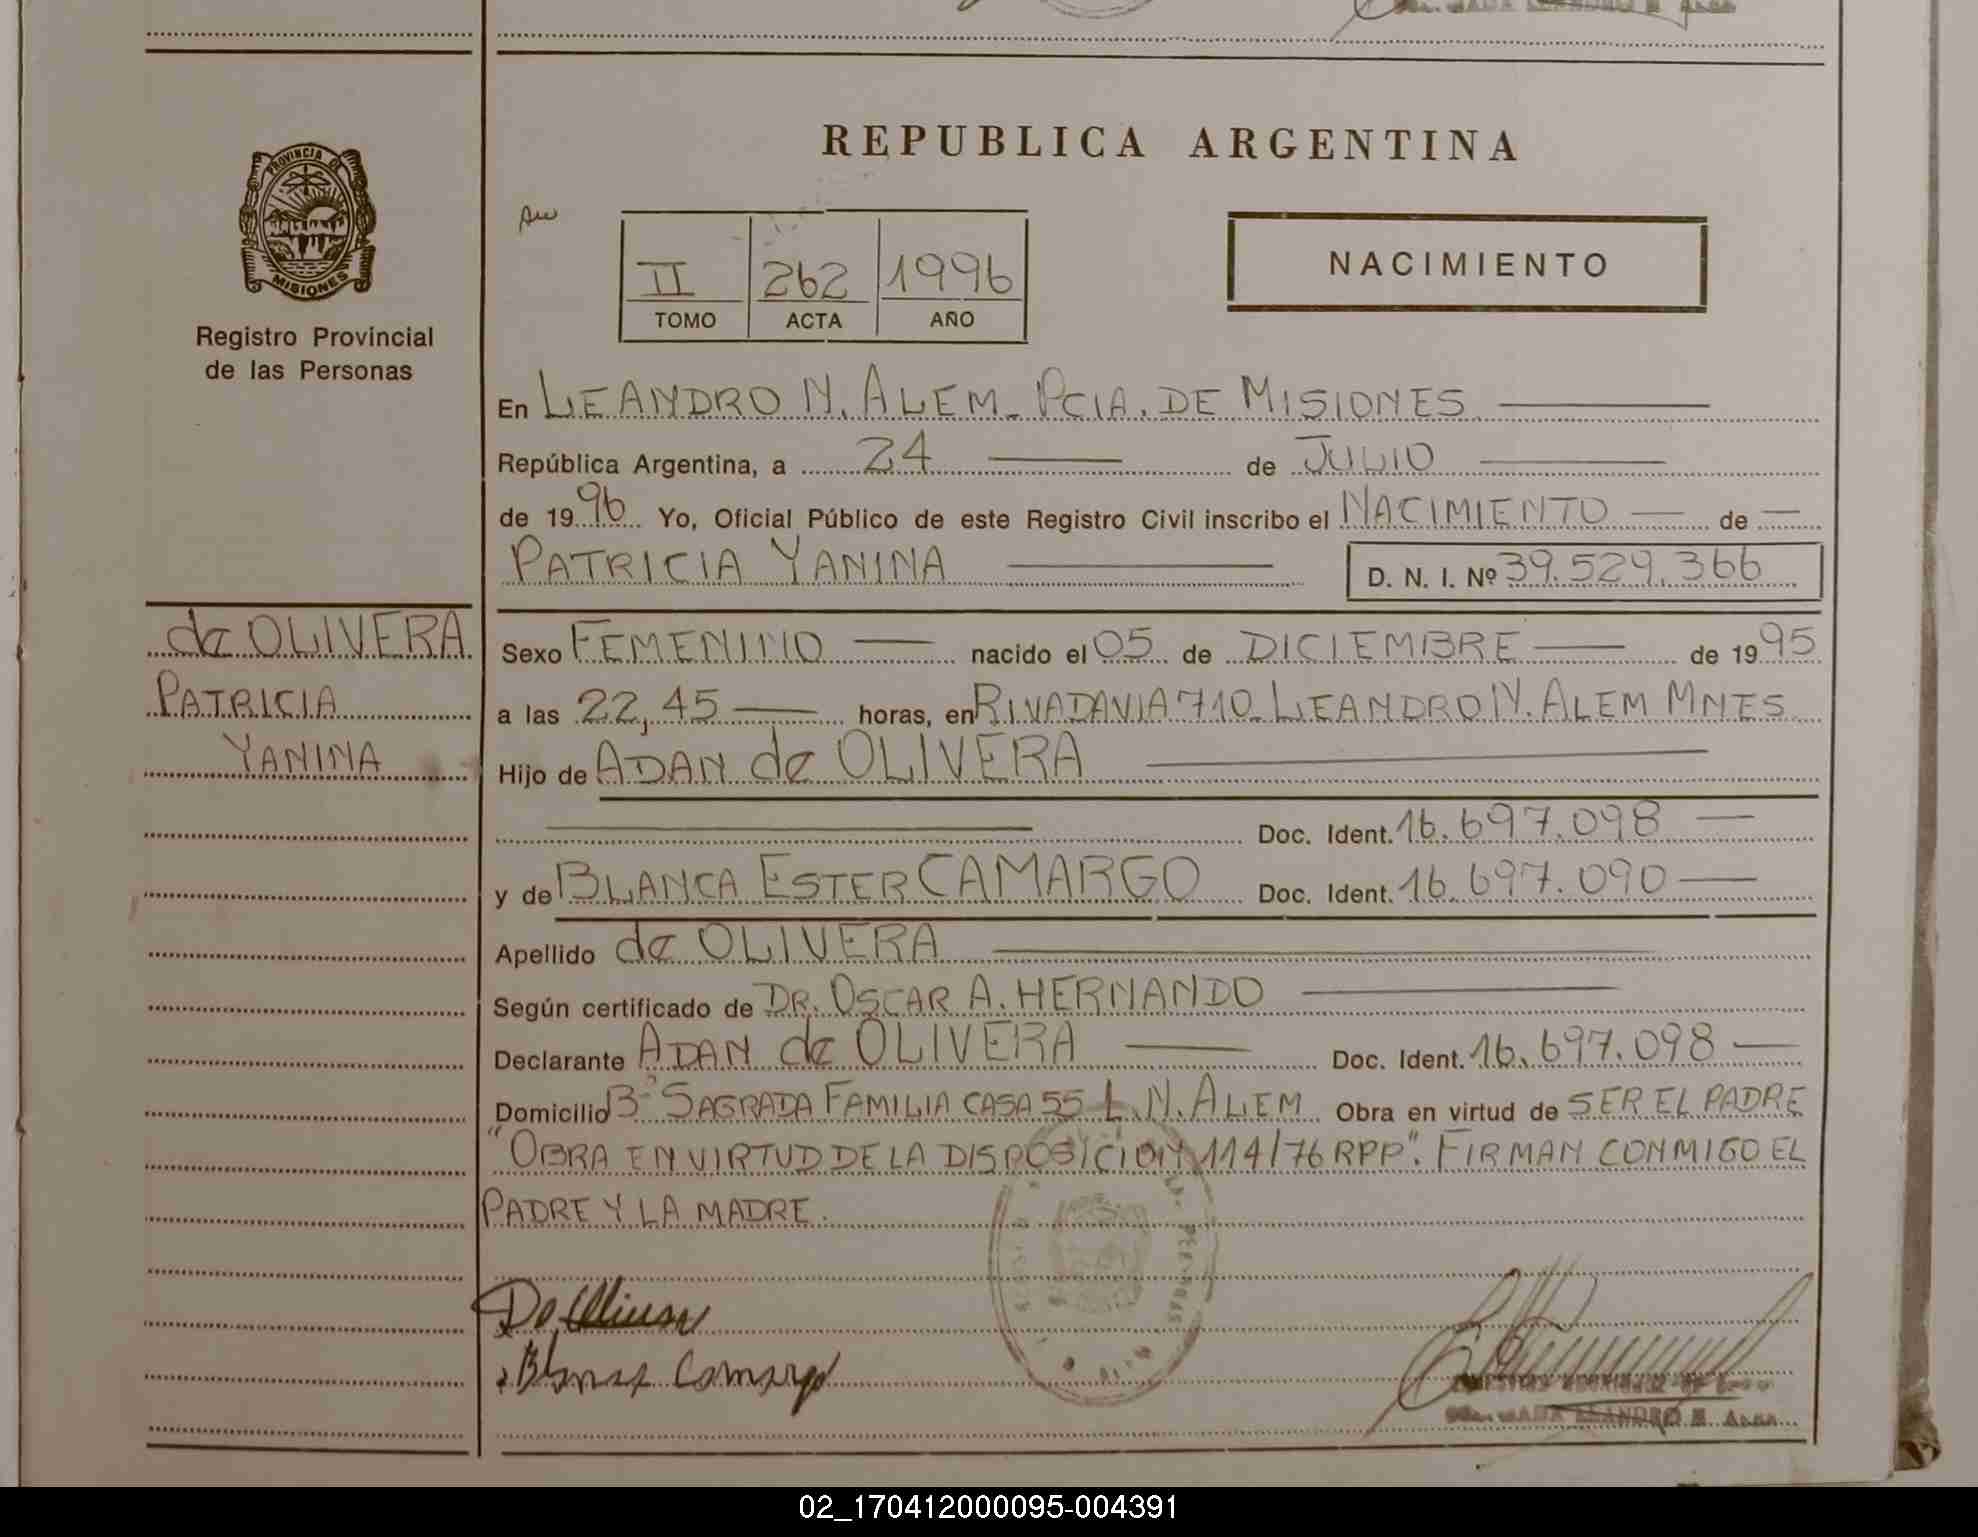 REPUBLICA ARGENTINA
PROVINCIA DE
MISIONES
Registro Provincial
de las Personas
II 262 1996
TOMO ACTA AÑO
NACIMIENTO
En LEANDRO N. ALEM_ PCIA. DE MISIONES
República Argentina, a 24 de JULIO
de 1996 Yo, Oficial Público de este Registro Civil inscribo el NACIMIENTO de
PATRICIA YANINA D. N. I. Nº 39.529.366
de OLIVERA
PATRICIA
YANINA
Sexo FEMENINO nacido el 05 de DICIEMBRE de 1995
a las 22,45 horas, en RIVADAVIA 710_ LEANDRO N. ALEM MNES
Hijo de ADAN de OLIVERA
Doc. Ident. 16.697.098
y de BLANCA ESTER CAMARGO Doc. Ident. 16.697.090
Apellido de OLIVERA
Según certificado de DR. OSCAR A. HERNANDO
Declarante ADAN de OLIVERA Doc. Ident. 16.697.098
Domicilio Bº SAGRADA FAMILIA CASA 55 L.N. ALEM Obra en virtud de SER EL PADRE
"OBRA EN VIRTUD DE LA DISPOSICION 114/76 RPP". FIRMAN CONMIGO EL
PADRE Y LA MADRE.
De Olivera
Blanca Camargo
LEANDRO N. ALEM
02_170412000095-004391